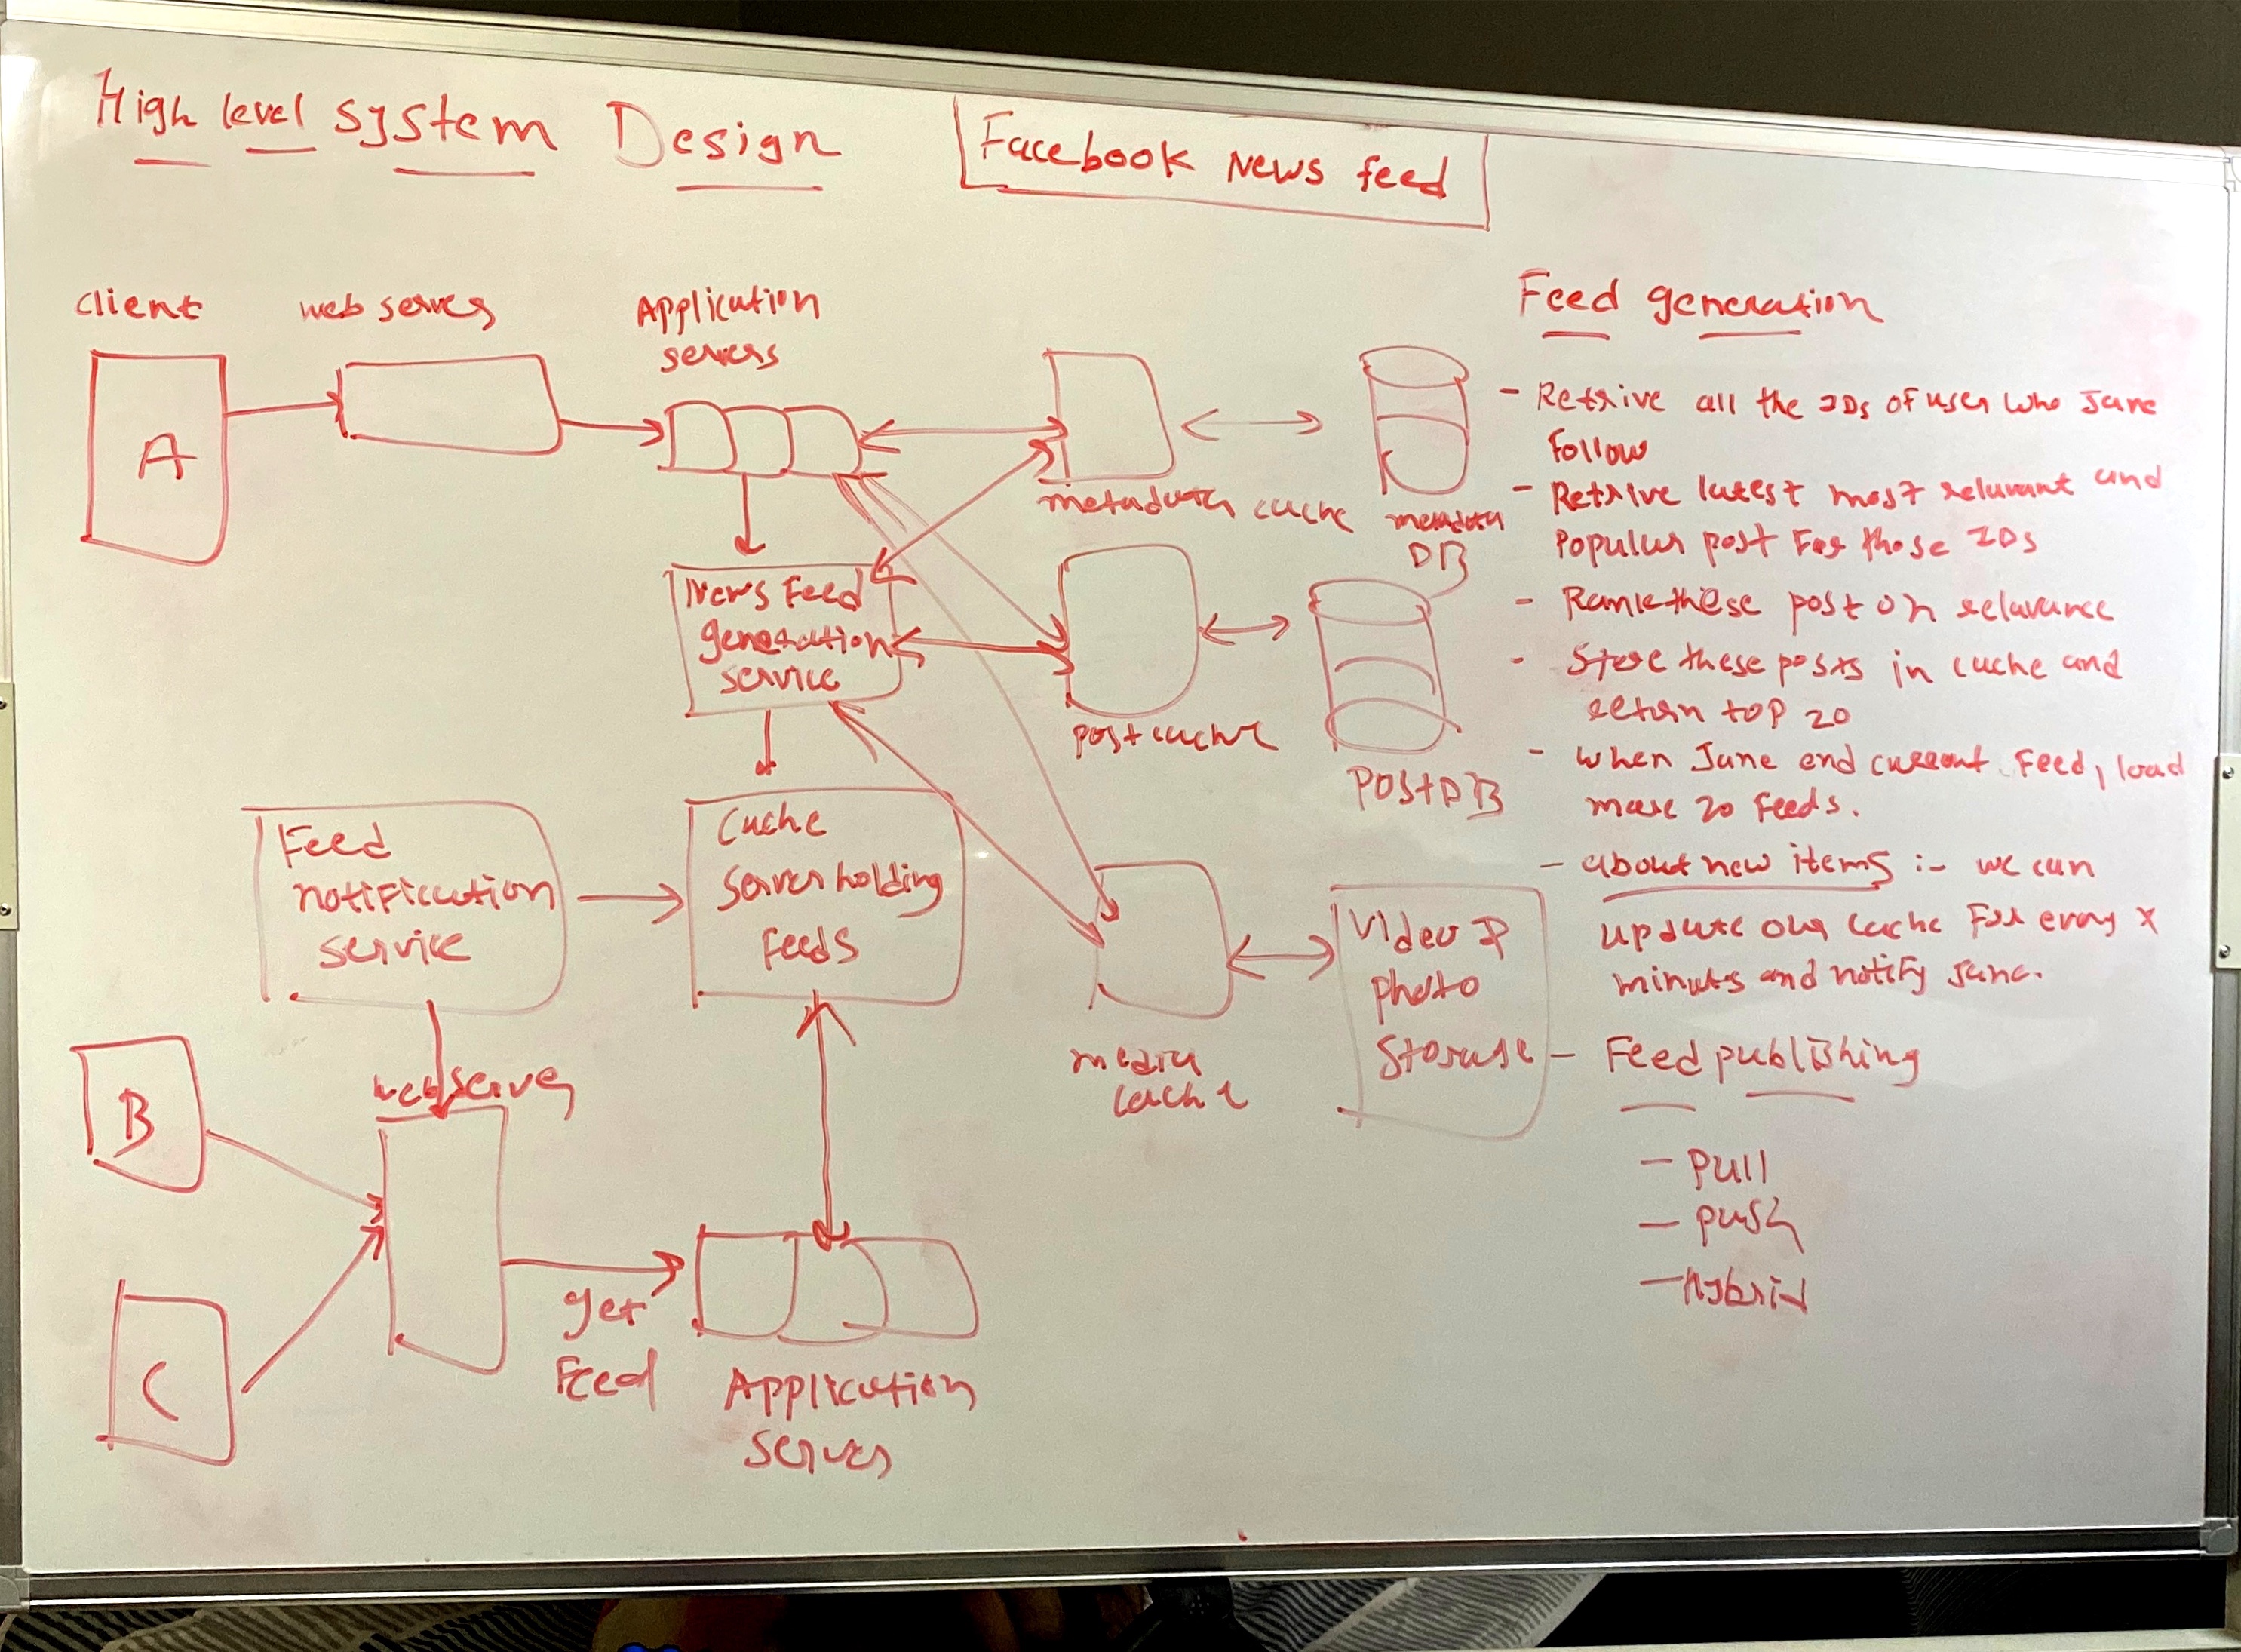 High level system Design
Facebook News feed
client
web server
Application
servers
A
metadata cache
metadata
DB
News Feed
generation
service
post cache
Post DB
Feed
notification
service
Cache
Server holding
feeds
media
cache
Video &
photo
Storage
B
webserver
C
get
Feed
Application
Server
Feed generation
- Retrive all the IDs of user who Jane
Follow
- Retrive latest most relavant and
Popular post For those IDs
- Rank these post on relavance
- Store these posts in cache and
return top 20
- when Jane end current feed, load
more 20 feeds.
- about new items :- we can
update our cache For every X
minuts and notify Jane.
- Feed publishing
- pull
- push
- hybrid